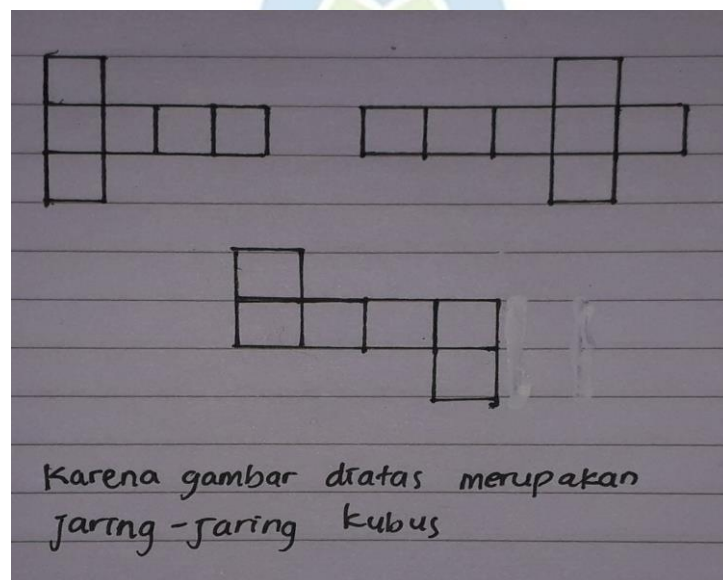 Karena gambar diatas merupakan
Jaring-Jaring kubus